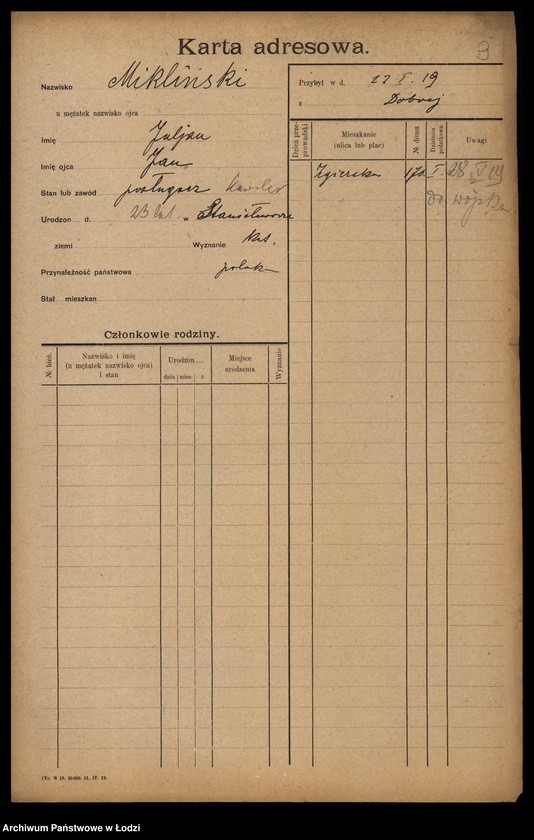 Karta adresowa.
9
Nazwisko Mikliński
u mężatek nazwisko ojca
Imię Juljan
Imię ojca Jan
Stan lub zawód posługacz kawaler
Urodzon d. 23 lat w
ziemi Wyznanie kat.
Przynależność państwowa polska
Stał mieszkan
Przybył w d. 22 I. 19
z Dobrej
Dzień przeprowadzki
Mieszkanie
(ulica lub plac)
№ domu
Dzielnica podatkowa
Uwagi
Zgierska 170 I. 28. V 19
do wojska
Członkowie rodziny.
№ bież.
Nazwisko i imię
(u mężatek nazwisko ojca)
i stan
Urodzon
dnia mies. r.
Miejsce
urodzenia
Wyznanie
Archiwum Państwowe w Łodzi